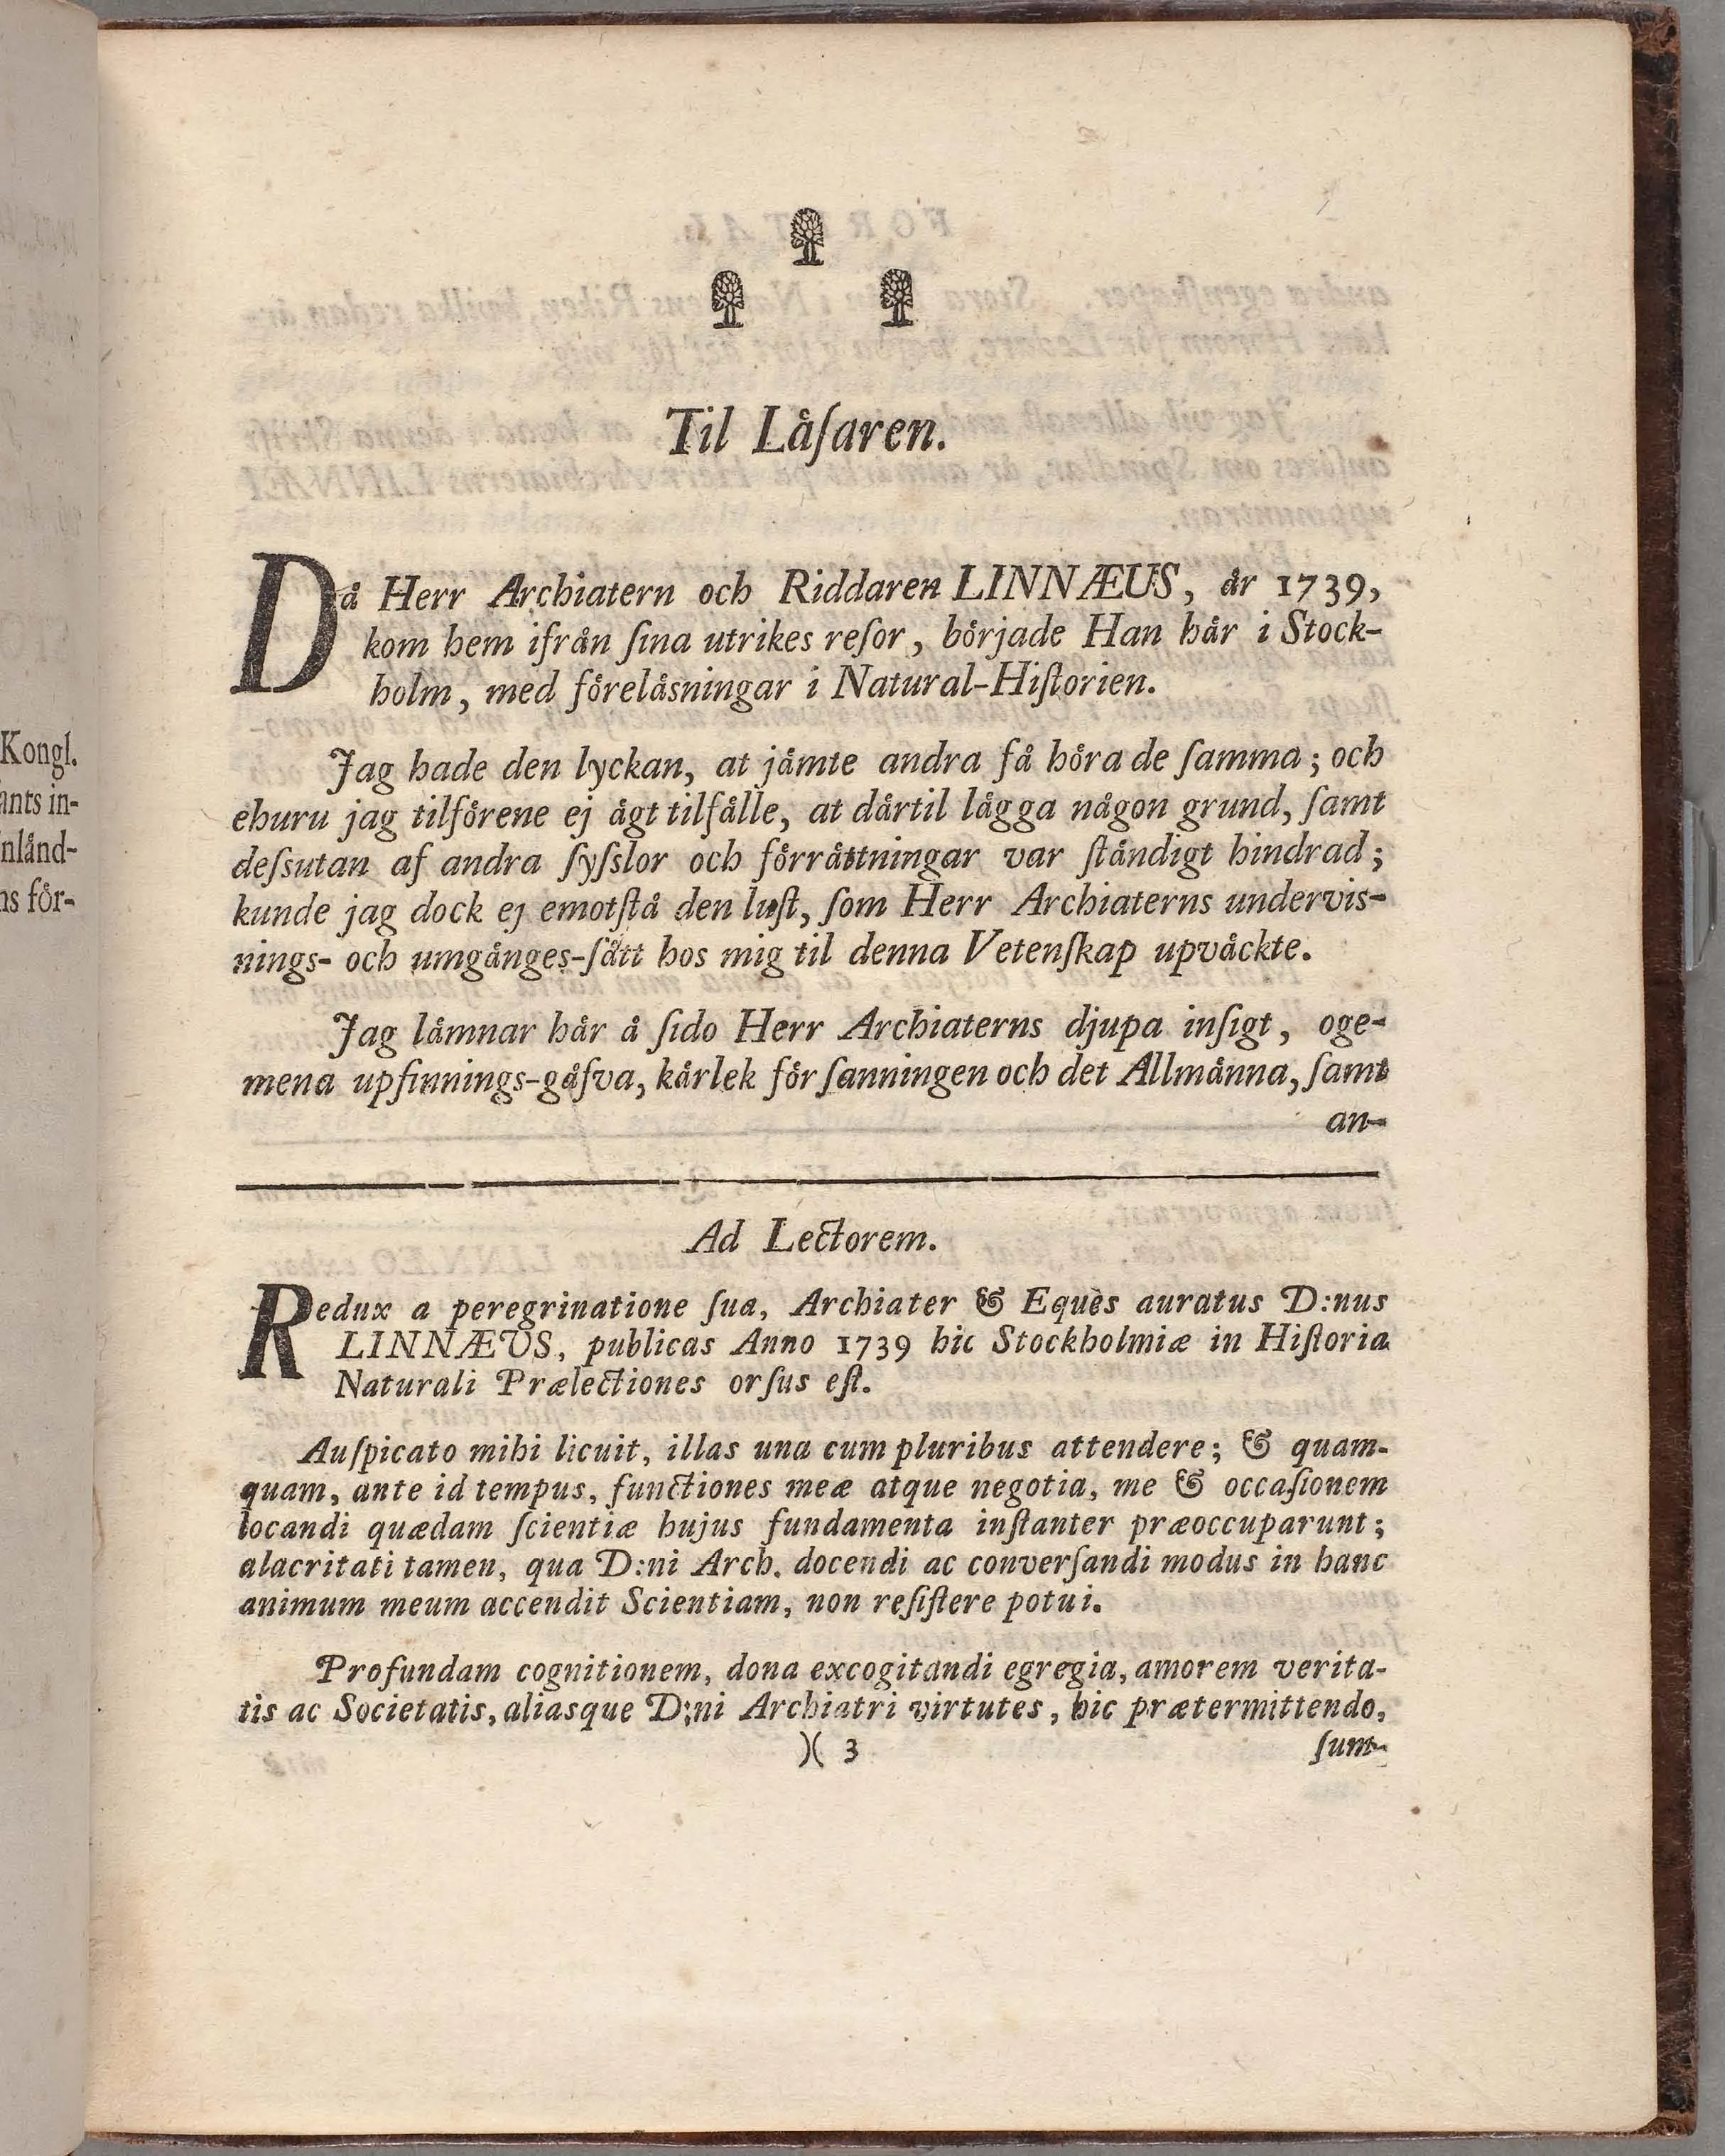 Kongl.
ants in-
nlånd-
ns för-
Til Låſaren.
Då Herr Archiatern och Riddaren LINNÆUS, år 1739,
kom hem ifrån ſina utrikes reſor, började Han hår i Stock-
holm, med föreläsningar i Natural-Hiſtorien.
Jag hade den lyckan, at jåmte andra få höra de ſamma; och
ehuru jag tilförene ej ågt tilfålle, at dårtil lågga någon grund, ſamt
deſsutan af andra ſyſslor och förråttningar var ſtåndigt hindrad;
kunde jag dock ej emotſtå den luſt, ſom Herr Archiaterns undervis-
nings- och umgånges-ſått hos mig til denna Vetenſkap upvåckte.
Jag låmnar hår å ſido Herr Archiaterns djupa inſigt, oge-
mena upfinnings-gåfva, kårlek för ſanningen och det Allmånna, ſamt
an-
Ad Lectorem.
Redux a peregrinatione ſua, Archiater & Eques auratus D:nus
LINNÆUS, publicas Anno 1739 hic Stockholmiæ in Hiſtoria
Naturali Prælectiones orſus eſt.
Auſpicato mihi licuit, illas una cum pluribus attendere; & quam-
quam, ante id tempus, functiones meæ atque negotia, me & occaſionem
locandi quædam ſcientiæ hujus fundamenta inſtanter præoccuparunt;
alacritati tamen, qua D:ni Arch. docendi ac converſandi modus in hanc
animum meum accendit Scientiam, non reſiſtere potui.
Profundam cognitionem, dona excogitandi egregia, amorem verita-
tis ac Societatis, aliasque D:ni Archiatri virtutes, hic prætermittendo,
)( 3 ſum-